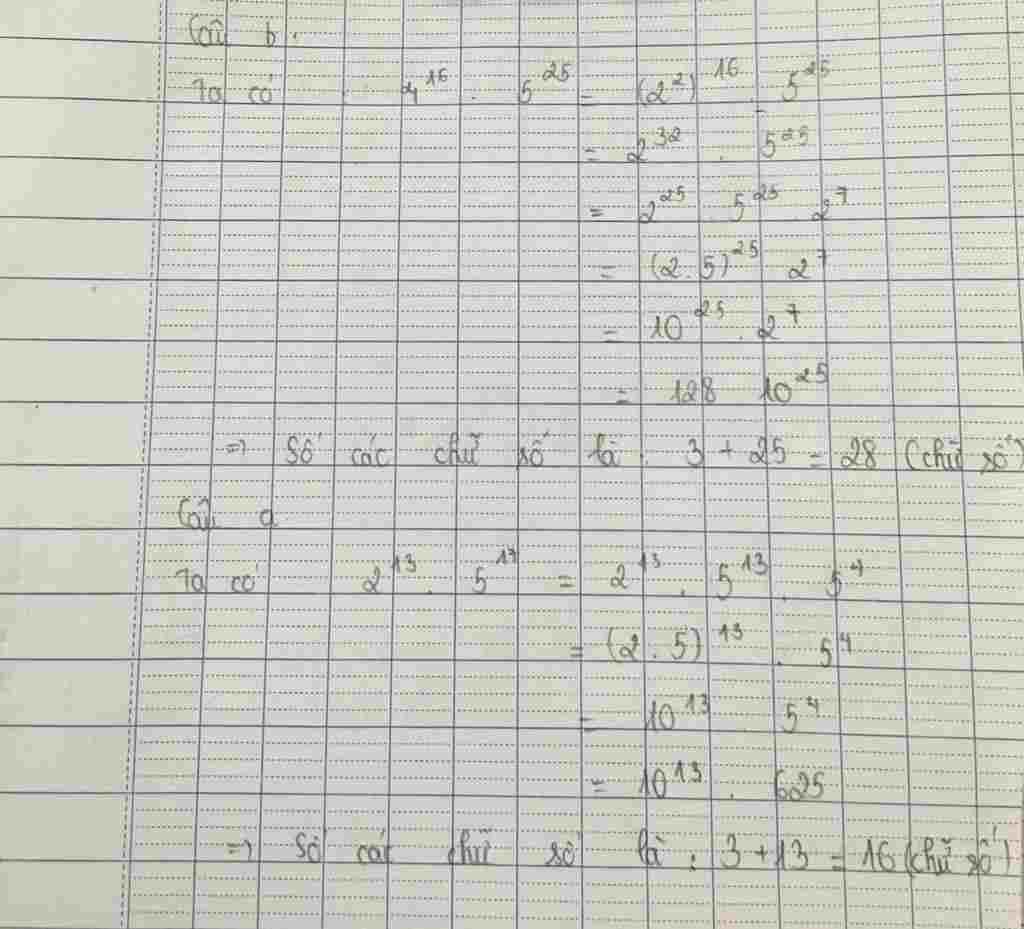 Câu b.
Ta có : 4^16 . 5^25 = (2^2)^16 . 5^25
= 2^32 . 5^25
= 2^25 . 5^25 . 2^7
= (2.5)^25 . 2^7
= 10^25 . 2^7
= 128 10^25
=> Số các chữ số là : 3 + 25 = 28 (chữ số)
Câu a
Ta có 2^13 . 5^17 = 2^13 . 5^13 . 5^4
= (2.5)^13 . 5^4
= 10^13 5^4
= 10^13 . 625
=> Số các chữ số là : 3 + 13 = 16 (chữ số)